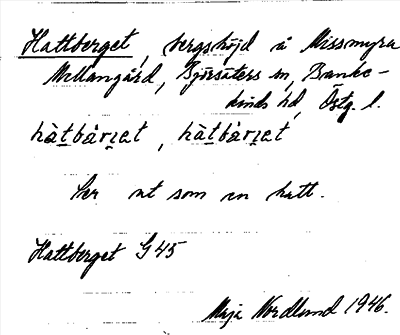 Hattberget, bergshöjd å Missmyra
Mellangård, Björsäters sn, Banke-
kinds hd, Östg. l.
hàtbår̯et, hàtbår̯et
Ser ut som en hatt.
Hattberget G45
Maja Nordlund 1946.